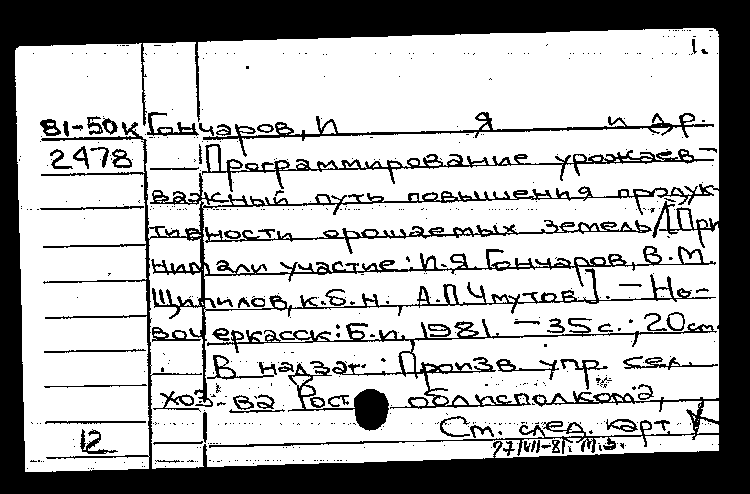 1.
81-50к Гончаров, П Я и др.
2478 Программирование урожаев -
важный путь повышения продук-
тивности орошаемых земель /[При
нимали участие: П.Я. Гончаров, В.М.
Щипилов, к.б.н., А.П. Чмутов]. - Но-
вочеркасск: Б.и., 1981. - 35 с.; 20 см
. В надзаг.: Произв. упр. сел.
хоз-ва Рост облисполкома,
См. след. карт
12
27/VII-81.